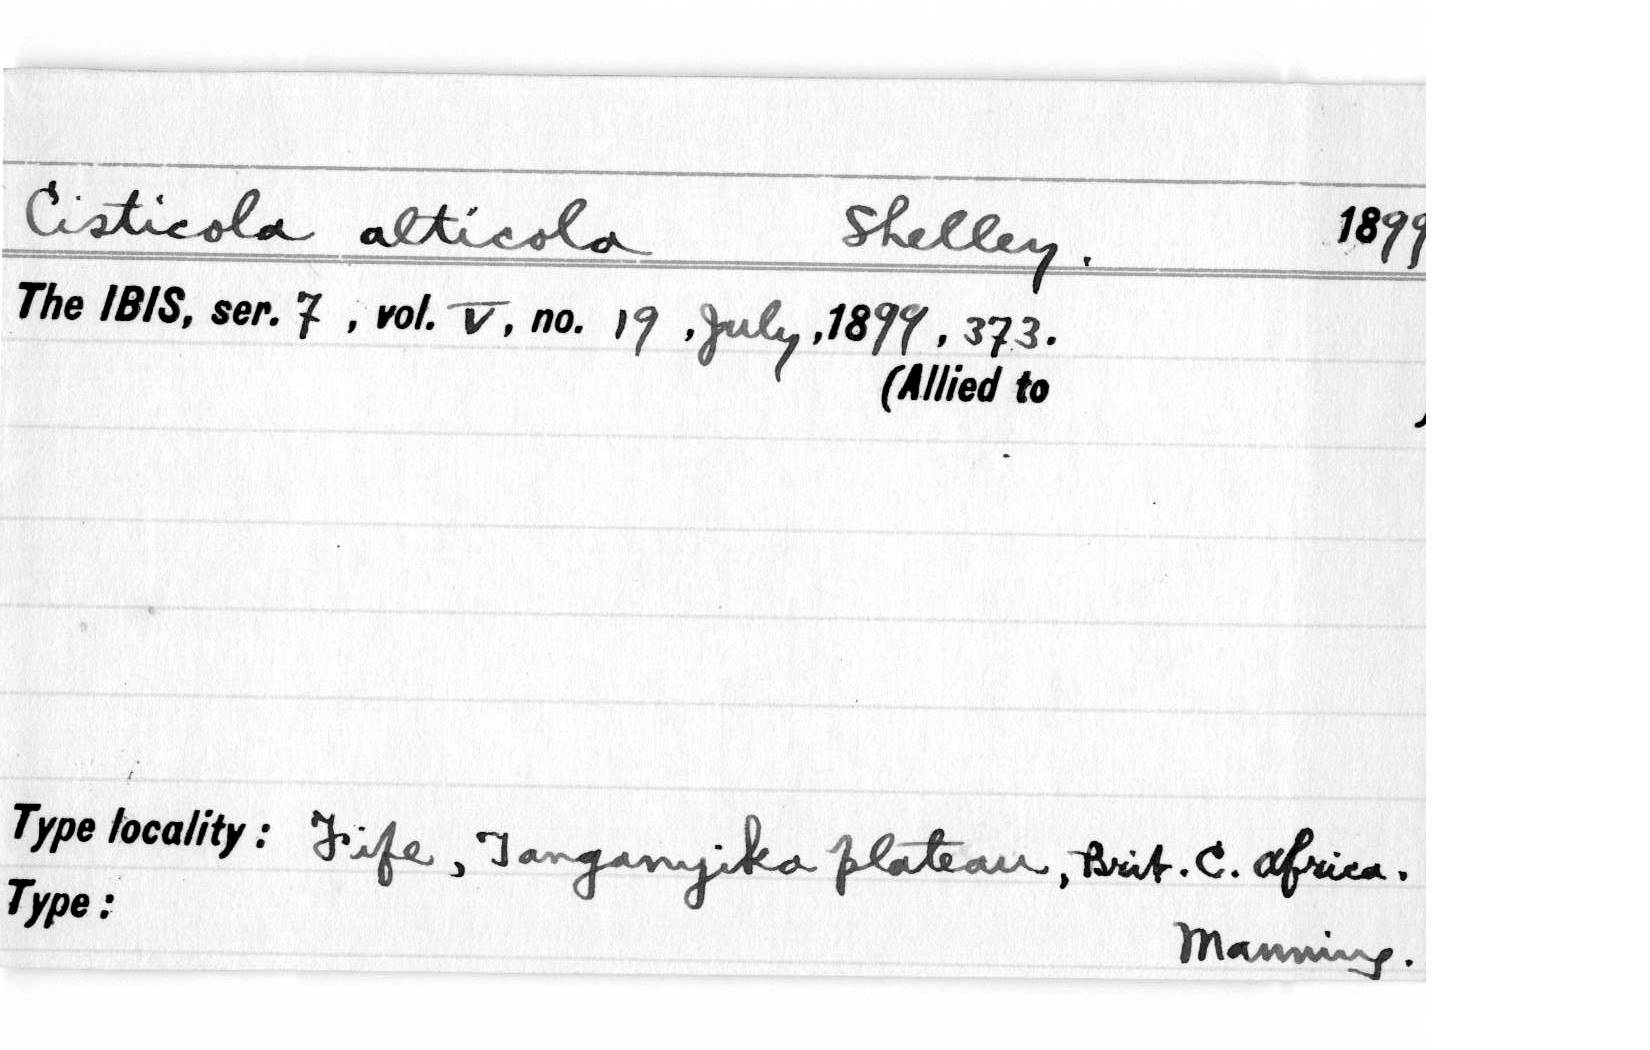 Cisticola alticola Shelley. 1899
The IBIS, ser. 7, vol. V, no. 19, July, 1899, 373.
(Allied to )
Type locality: Fife, Tanganyika plateau, Brit. C. Africa.
Type:
Manning.